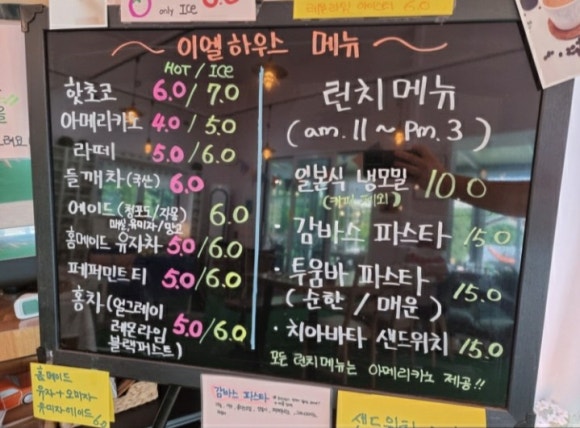 only ICE 6.0
6.0
이엘하우스 메뉴
HOT / ICE
핫초코 6.0 / 7.0
아메리카노 4.0 / 5.0
라떼 5.0 / 6.0
들깨차 (국산) 6.0
에이드 (청포도/자몽/ 6.0
매실/유자/망고
홈메이드 유자차 5.0 / 6.0
페퍼민트 티 5.0 / 6.0
홍차 (얼그레이
레몬라임 5.0 / 6.0
블랙퍼스트)
런치 메뉴
( am. 11 ~ pm. 3 )
일본식 냉모밀 10.0
(커피 제외)
감바스 파스타 15.0
· 투움바 파스타
( 순한 / 매운 ) 15.0
· 치아바타 샌드위치 15.0
모든 런치메뉴는 아메리카노 제공!!
홈메이드
유자+오미자
6.0
감바스 파스타
샌드위치